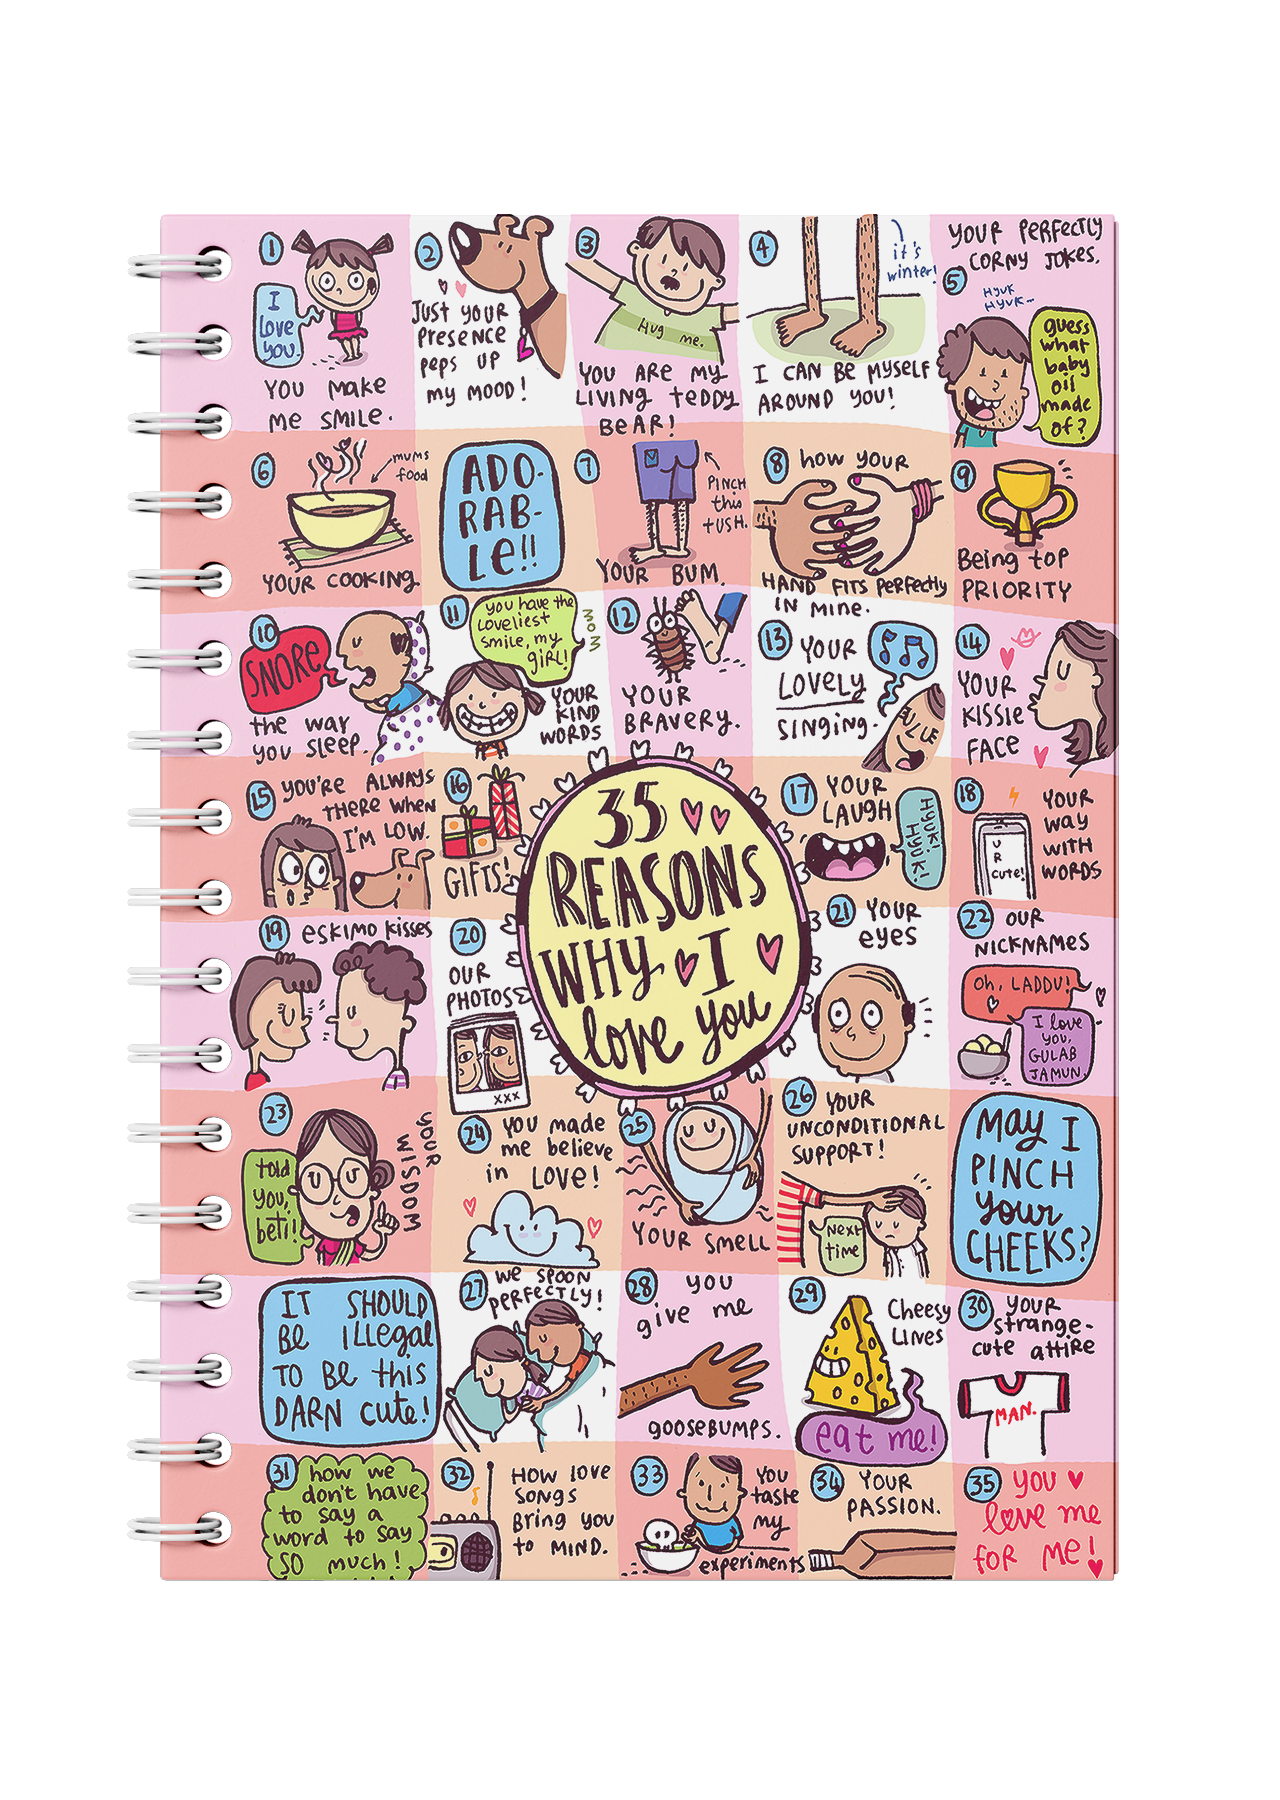 1
I
love
you.
YOU MAKE
ME SMILE.
2
JUST YOUR
PRESENCE
PEPS UP
MY MOOD!
3
Hug me.
YOU ARE MY
LIVING TEDDY
BEAR!
4
it's
winter!
I CAN BE MYSELF
AROUND YOU!
YOUR PERFECTLY
CORNY JOKES.
5
HYUK
HYUK~
guess
what
baby
oil
made
of?
6
mums
food
YOUR COOKING.
ADO-
RAB-
LE!!
7
PINCH
this
tUSH.
YOUR BUM.
8
HOW YOUR
HAND FITS PERFECTLY
IN MINE.
9
BEING TOP
PRIORITY
10
SNORE
the WAY
YOU SLEEP.
11
you have the
loveliest
smile, my
girl!
MOM
YOUR
KIND
WORDS
12
YOUR
BRAVERY.
13
YOUR
LOVELY
SINGING.
14
YOUR
KISSIE
FACE
15
YOU'RE ALWAYS
THERE WHEN
I'M LOW.
16
GIFTS!
35
REASONS
WHY I
love you
17
YOUR
LAUGH
HYUK!
HYUK!
18
U
R
CUTE!
YOUR
WAY
WITH
WORDS
19
ESKIMO KISSES
20
OUR
PHOTOS
XXX
21
YOUR
eyes
22
OUR
NICKNAMES
Oh, LADDU!
I love
you,
GULAB
JAMUN.
23
told
you,
beti!
YOUR
WISDOM
24
YOU MADE
ME BELIEVE
IN LOVE!
25
YOUR SMELL
26
YOUR
UNCONDITIONAL
SUPPORT!
NEXT
time
MAY I
PINCH
YOUR
CHEEKS?
IT SHOULD
BE ILLEGAL
TO BE THIS
DARN CUTE!
27
WE SPOON
PERFECTLY!
28
YOU
give me
GOOSEBUMPS.
29
CHEESY
LINES
eat me!
30
YOUR
strange-
cute attire
MAN.
31
HOW WE
DON'T HAVE
TO SAY A
WORD TO SAY
SO MUCH!
32
HOW LOVE
SONGS
BRING YOU
TO MIND.
33
YOU
taste
my
experiments
34
YOUR
PASSION.
35
YOU
LOVE ME
FOR ME!